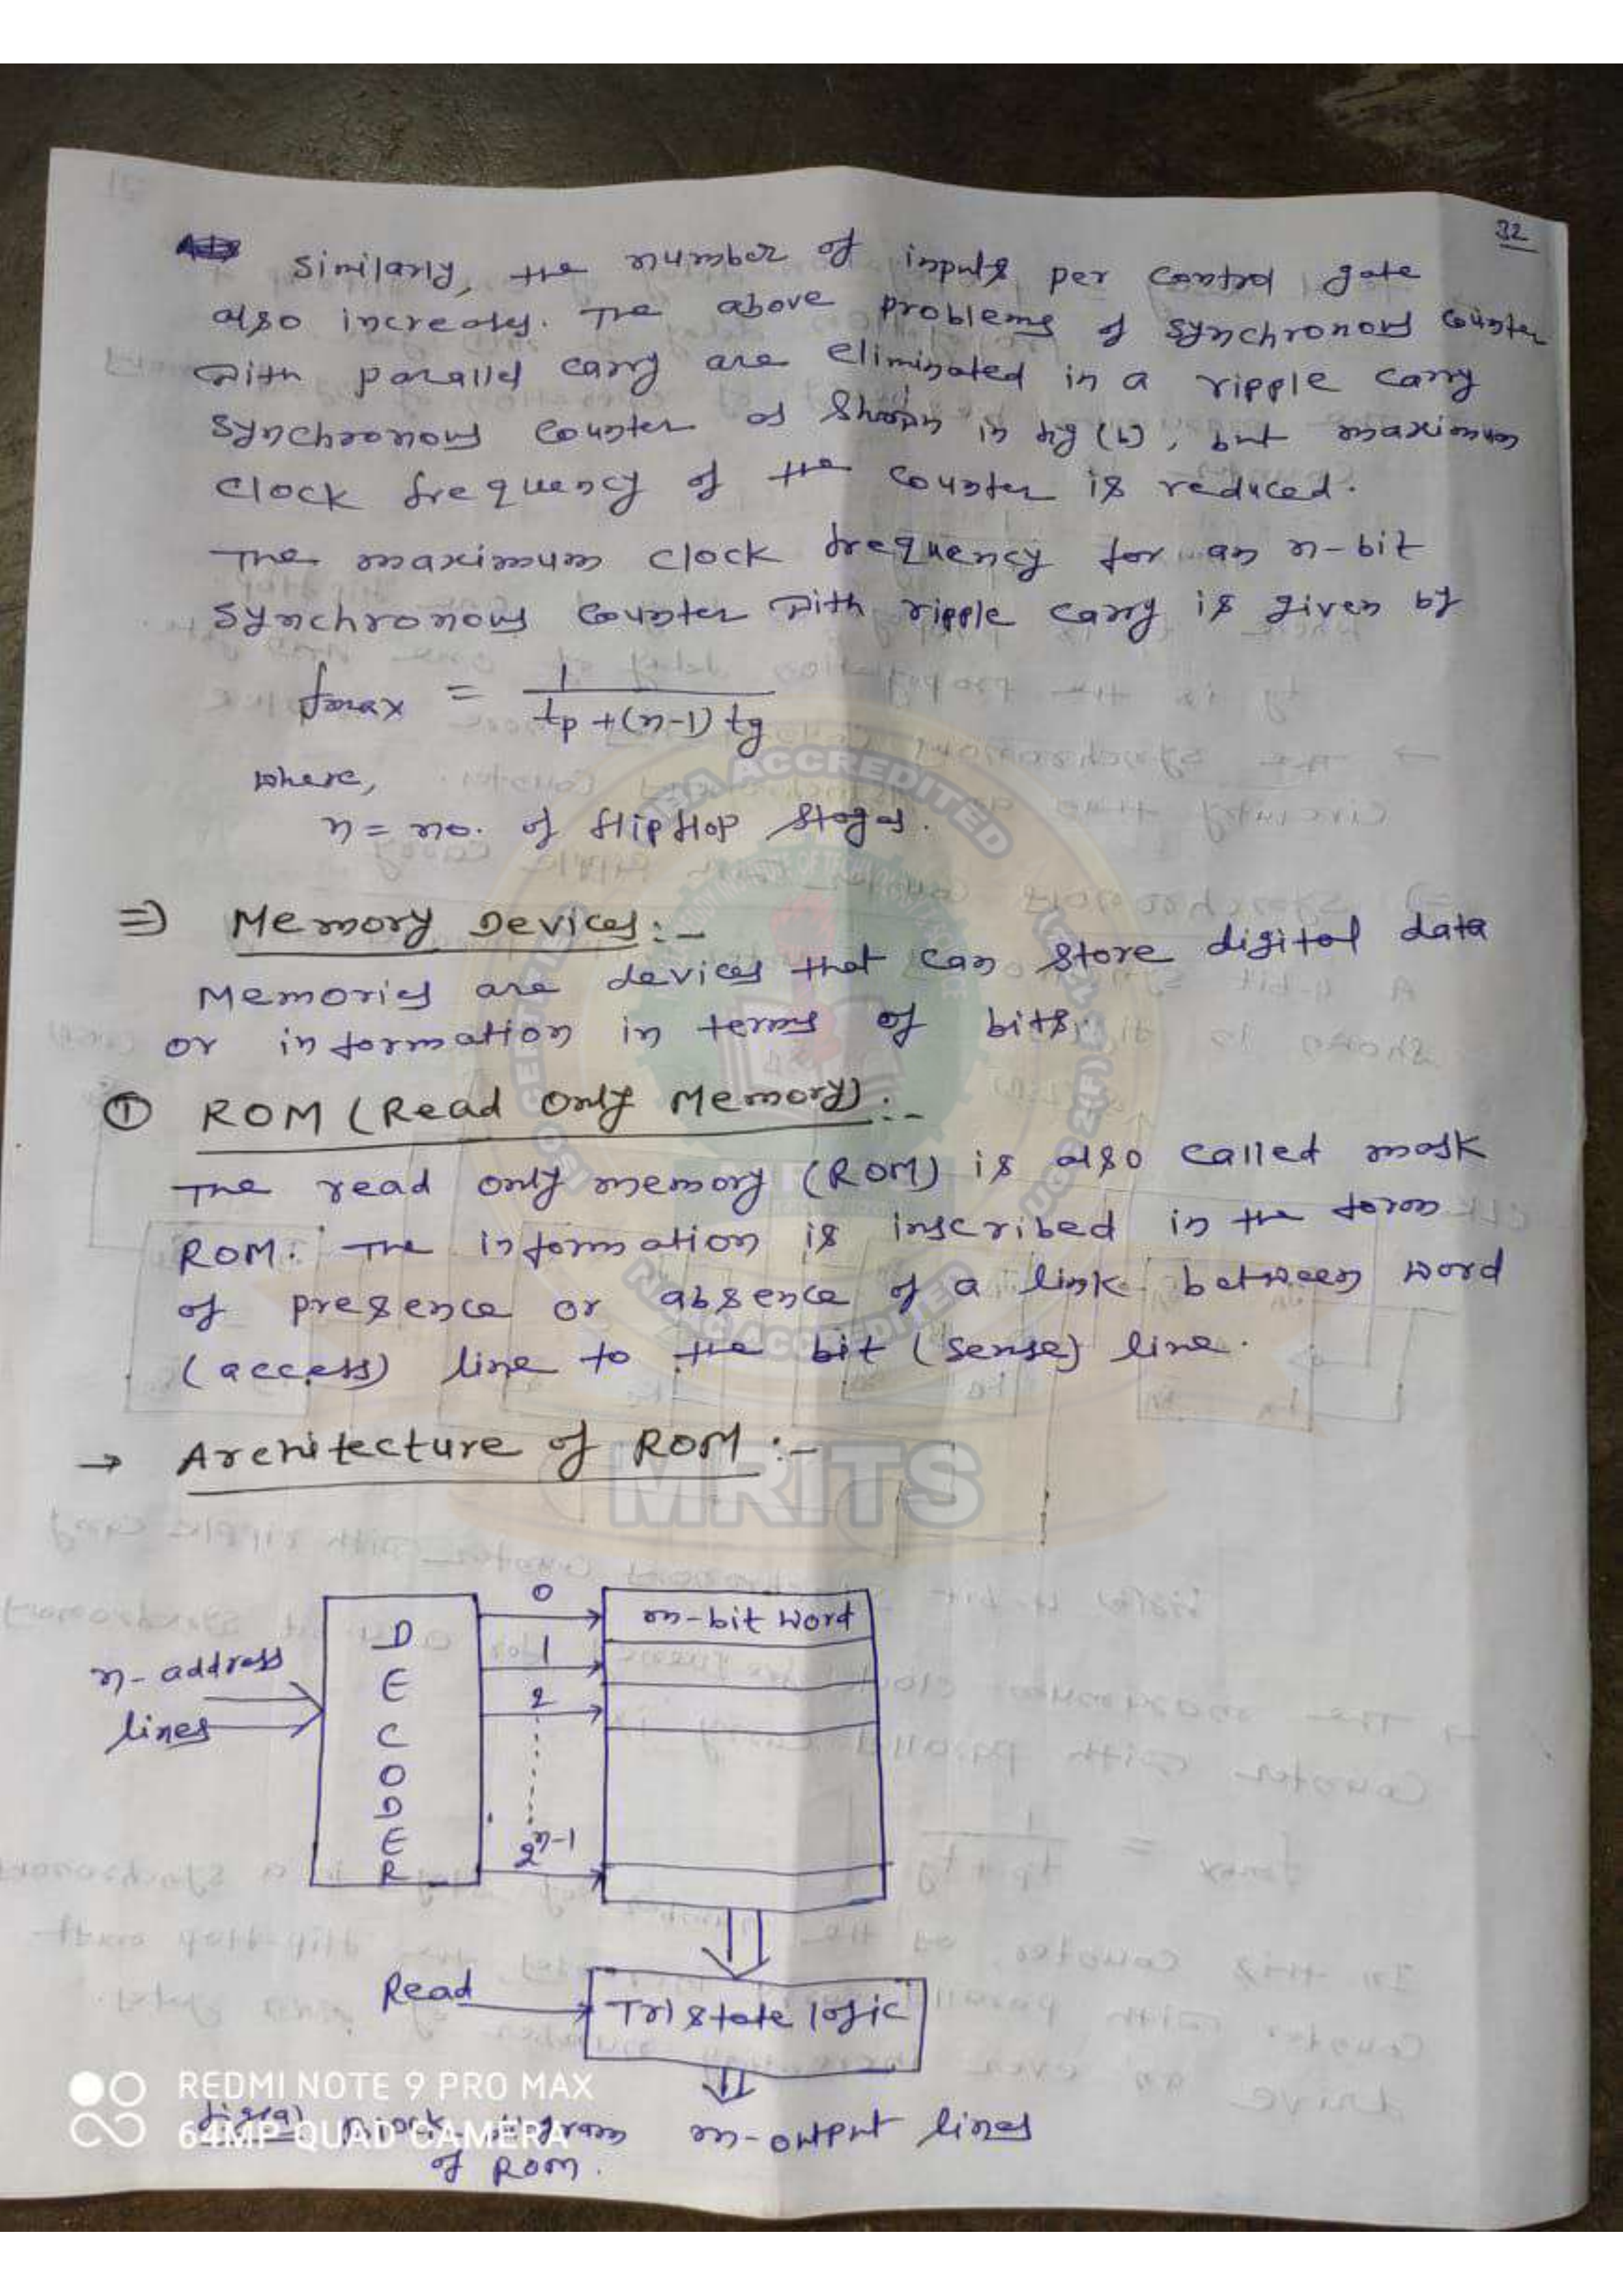 32
Similarly, the number of inputs per control gate
also increases. The above problems of synchronous counter
with parallel carry are eliminated in a ripple carry
synchronous counter as shown in fig (b), but maximum
clock frequency of the counter is reduced.
The maximum clock frequency for an n-bit
synchronous counter with ripple carry is given by
fmax = 1 / tp + (n-1) tg
where,
n = no. of flipflop stages.
⇒ Memory Devices:-
Memories are devices that can store digital data
or information in terms of bits.
① ROM (Read Only Memory):-
The read only memory (ROM) is also called mask
ROM. The information is inscribed in the form
of presence or absence of a link between word
(access) line to the bit (sense) line.
→ Architecture of ROM :-
n-address
lines
DECODER
0
1
2
2^n-1
m-bit word
Read
Tristate logic
m-output lines
block
of ROM.
NBA ACCREDITED
NAAC ACCREDITED
MRITS
REDMI NOTE 9 PRO MAX
64MP QUAD CAMERA